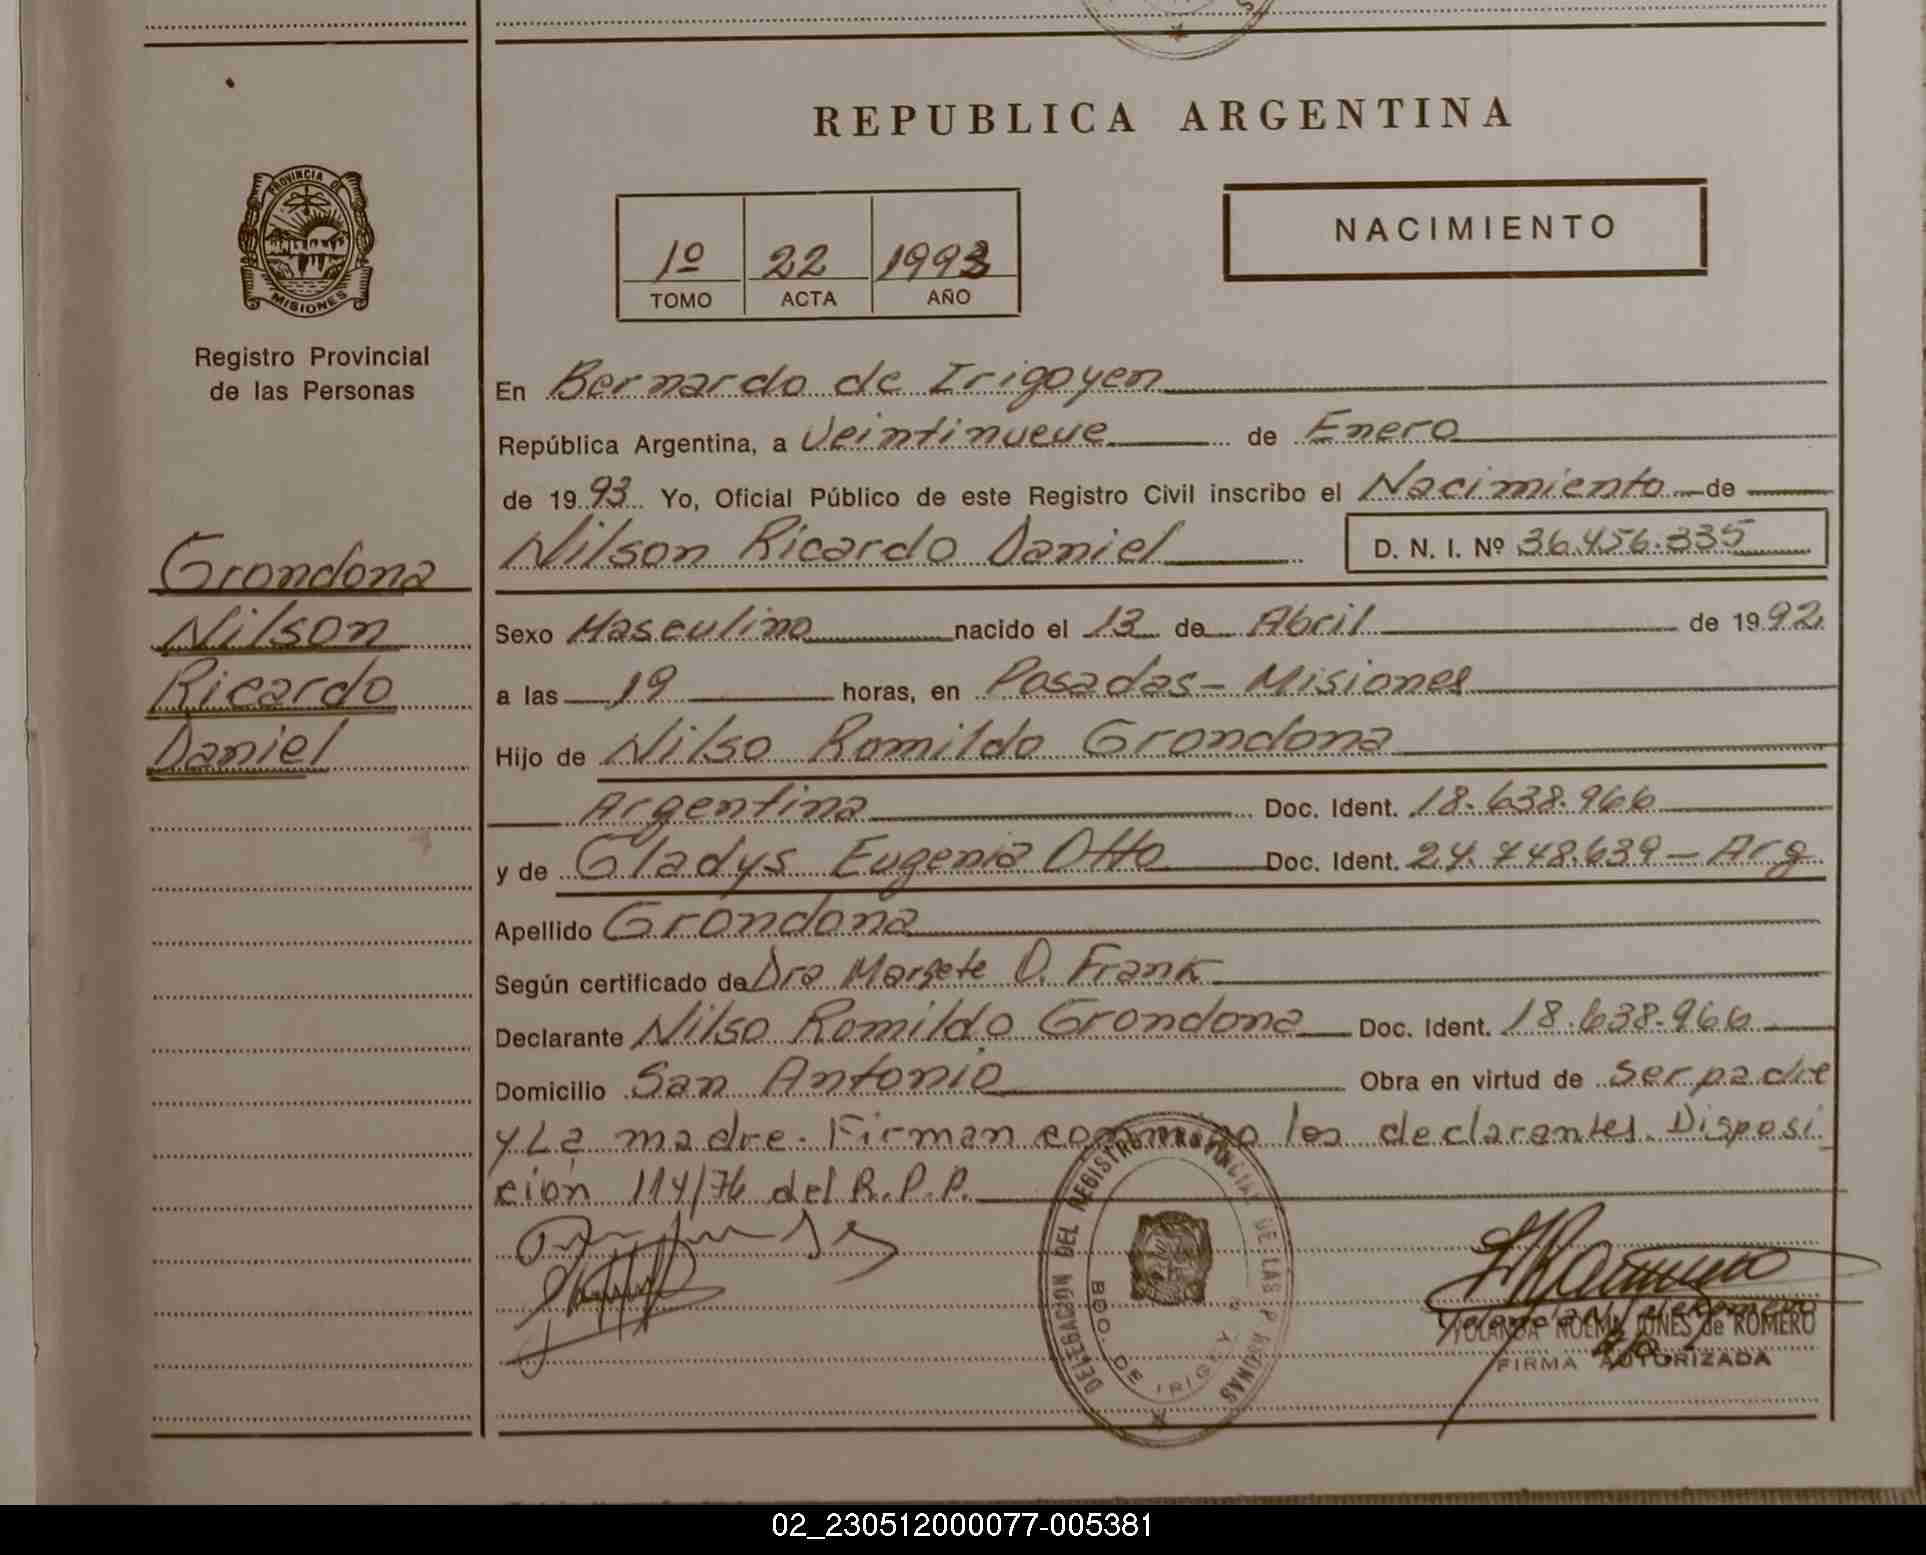 REPUBLICA ARGENTINA
PROVINCIA DE
MISIONES
Registro Provincial
de las Personas
NACIMIENTO
1º 22 1993
TOMO ACTA AÑO
En Bernardo de Irigoyen
República Argentina, a Veintinueve de Enero
de 1993 Yo, Oficial Público de este Registro Civil inscribo el Nacimiento de
Nilson Ricardo Daniel D. N. I. Nº 36.456.335
Grondona
Nilson
Ricardo
Daniel
Sexo Masculino nacido el 13 de Abril de 1992
a las 19 horas, en Posadas - Misiones
Hijo de Nilso Romildo Grondona
Argentina Doc. Ident. 18.638.966
y de Gladys Eugenia Otto Doc. Ident. 24.748.639 - Arg
Apellido Grondona
Según certificado de Dra Margete O. Frank
Declarante Nilso Romildo Grondona Doc. Ident. 18.638.966
Domicilio San Antonio Obra en virtud de Ser padre
y La madre. Firman conmigo los declarantes. Disposi
ción 114/76 del R.P.P.
DELEGACIÓN DEL REGISTRO PROVINCIAL DE LAS PERSONAS
BDO. DE IRIGOYEN
YOLANDA NOEMI JONES de ROMERO
FIRMA AUTORIZADA
02_230512000077-005381